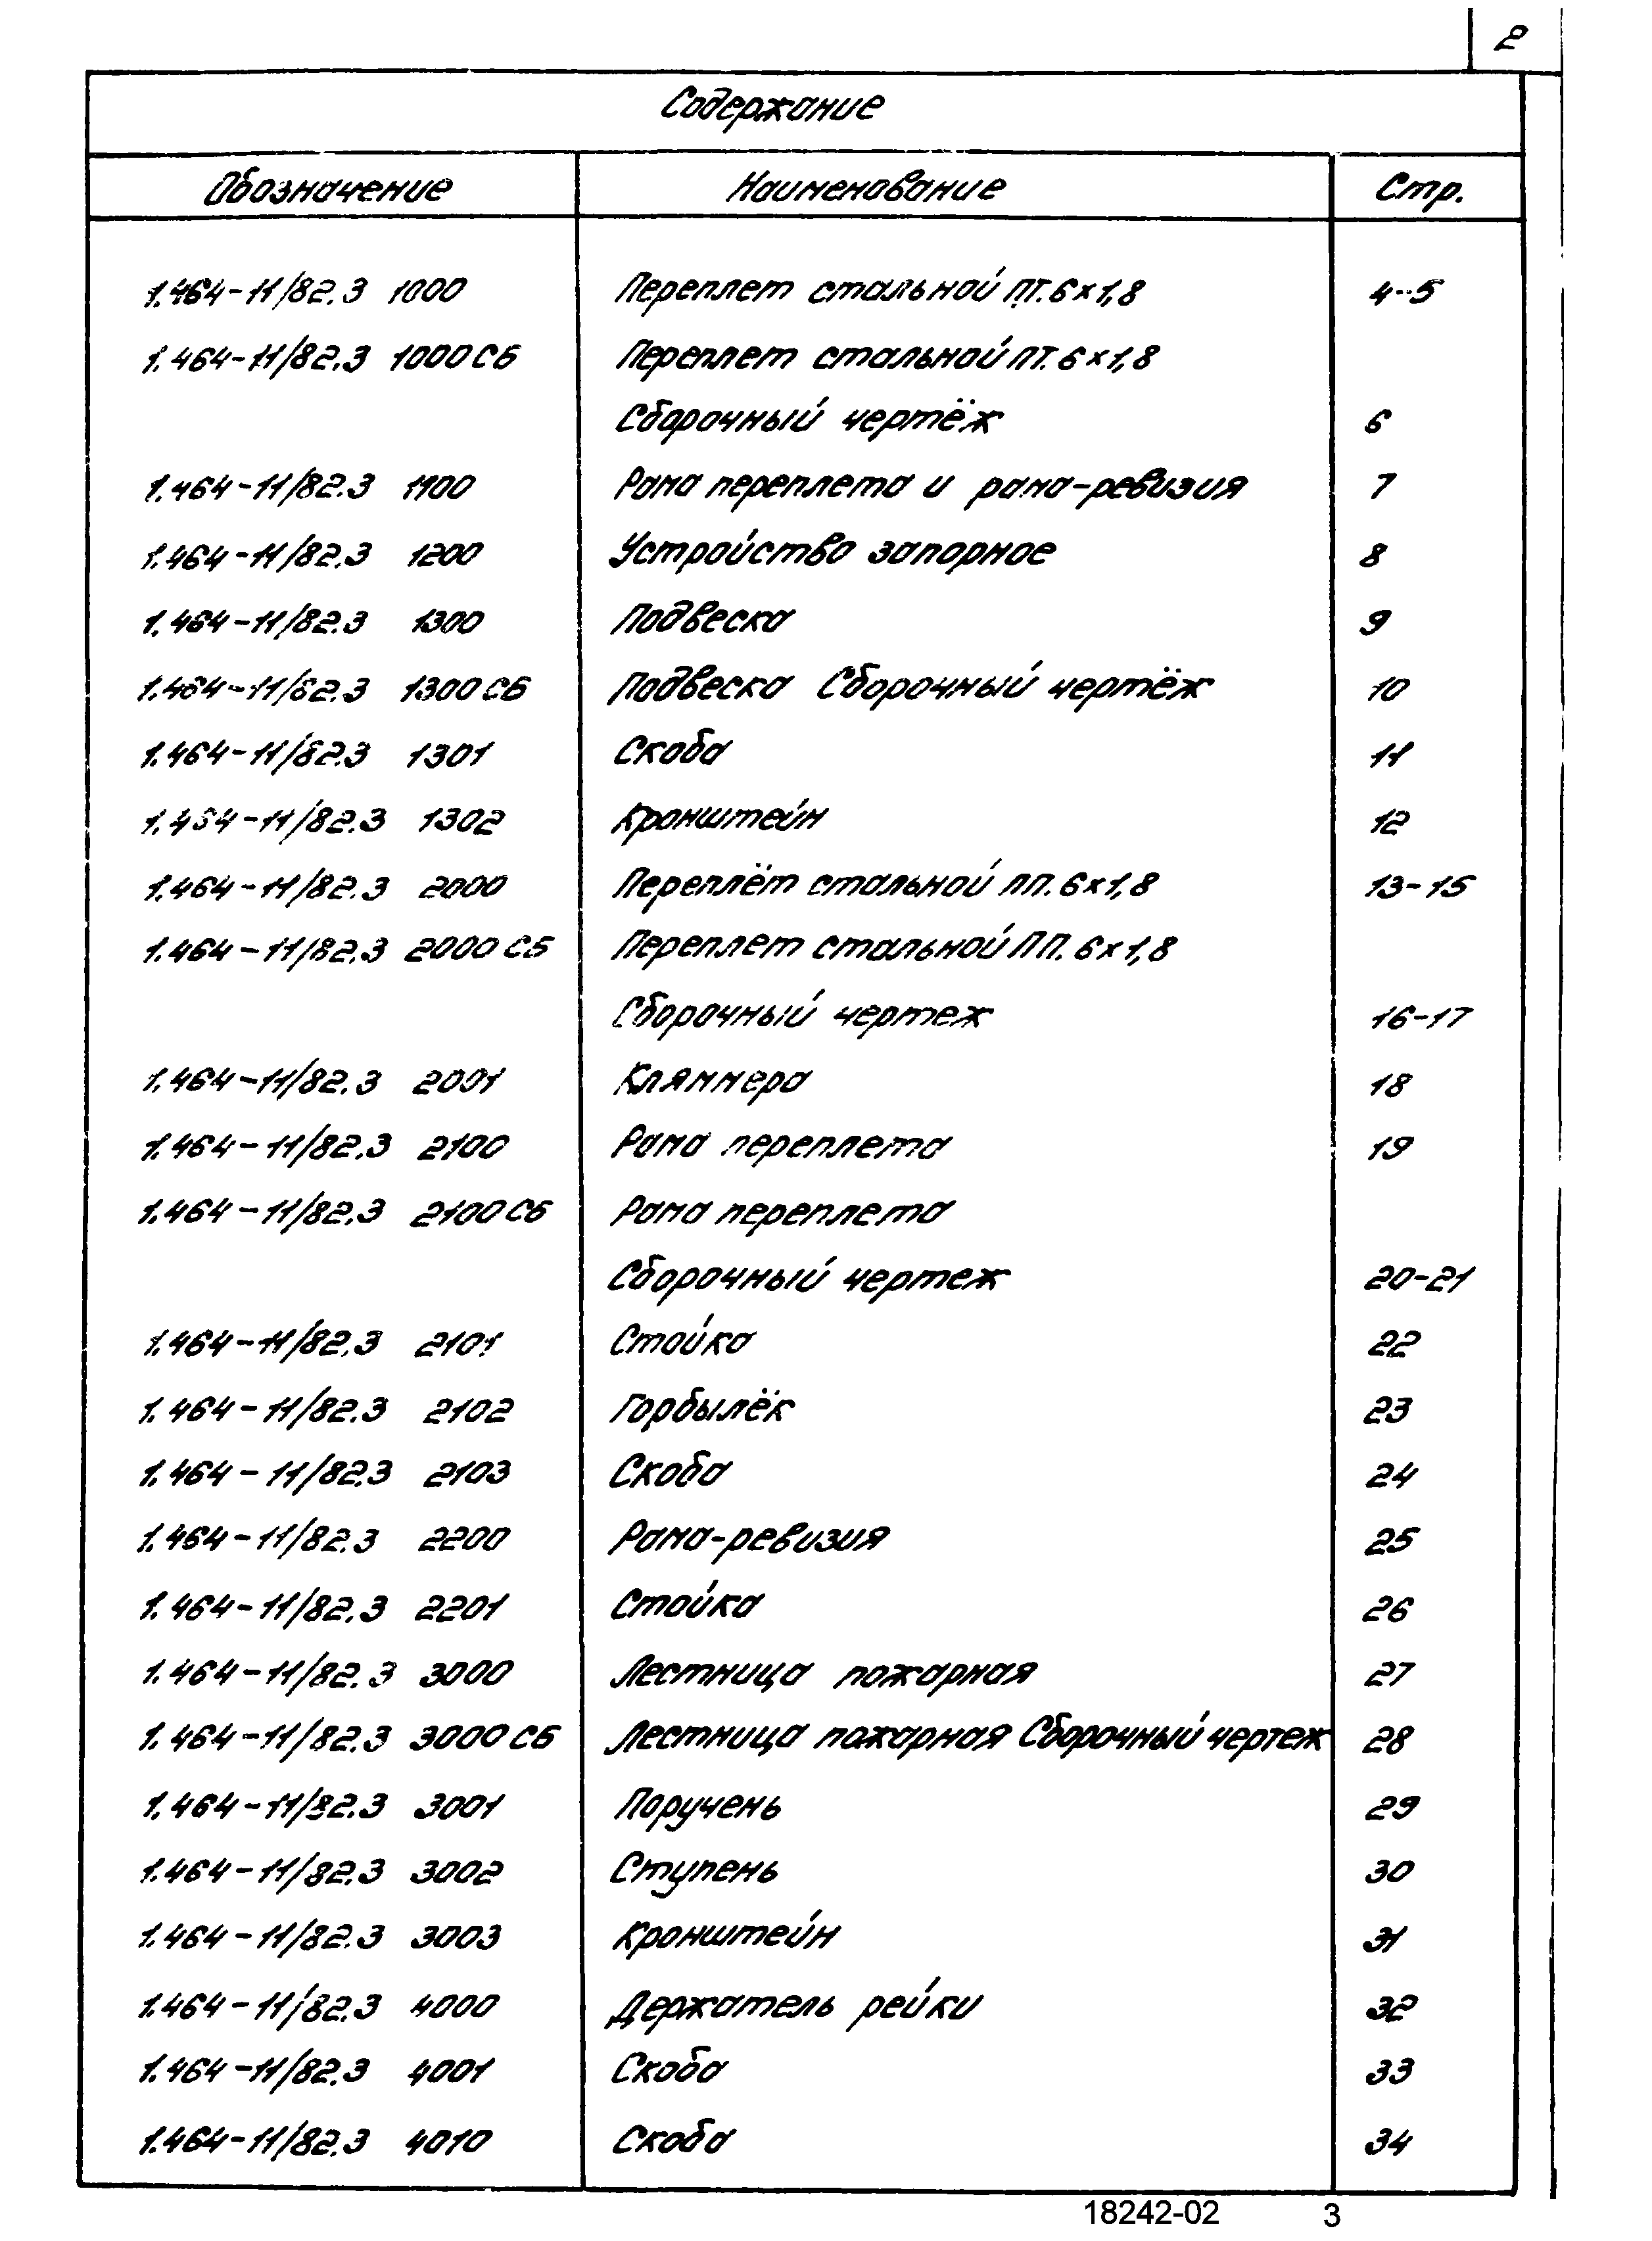 2
Содержание
Обозначение Наименование Стр.
1.464-11/82.3 1000 Переплет стальной ПТ.6×1,8 4-5
1.464-11/82.3 1000СБ Переплет стальной ПТ.6×1,8
Сборочный чертёж 6
1.464-11/82.3 1100 Рама переплета и рама-ревизия 7
1.464-11/82.3 1200 Устройство запорное 8
1.464-11/82.3 1300 Подвеска 9
1.464-11/82.3 1300СБ Подвеска Сборочный чертёж 10
1.464-11/82.3 1301 Скоба 11
1.464-11/82.3 1302 Кронштейн 12
1.464-11/82.3 2000 Переплёт стальной ПП.6×1,8 13-15
1.464-11/82.3 2000СБ Переплет стальной ПП.6×1,8
Сборочный чертеж 16-17
1.464-11/82.3 2001 Кляммера 18
1.464-11/82.3 2100 Рама переплета 19
1.464-11/82.3 2100СБ Рама переплета
Сборочный чертеж 20-21
1.464-11/82.3 2101 Стойка 22
1.464-11/82.3 2102 Горбылёк 23
1.464-11/82.3 2103 Скоба 24
1.464-11/82.3 2200 Рама-ревизия 25
1.464-11/82.3 2201 Стойка 26
1.464-11/82.3 3000 Лестница пожарная 27
1.464-11/82.3 3000СБ Лестница пожарная Сборочный чертеж 28
1.464-11/82.3 3001 Поручень 29
1.464-11/82.3 3002 Ступень 30
1.464-11/82.3 3003 Кронштейн 31
1.464-11/82.3 4000 Держатель рейки 32
1.464-11/82.3 4001 Скоба 33
1.464-11/82.3 4010 Скоба 34
18242-02 3